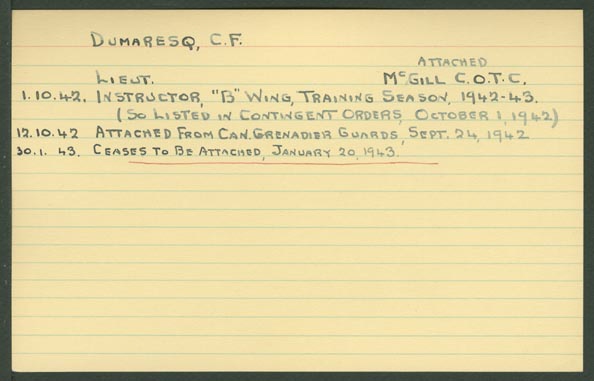 DUMARESQ, C.F.
ATTACHED
LIEUT. McGILL C.O.T.C.
1.10.42. INSTRUCTOR, "B" WING, TRAINING SEASON, 1942-43.
(SO LISTED IN CONTINGENT ORDERS, OCTOBER 1, 1942)
12.10.42 ATTACHED FROM CAN. GRENADIER GUARDS, SEPT. 24, 1942
30.1. 43. CEASES TO BE ATTACHED, JANUARY 20, 1943.